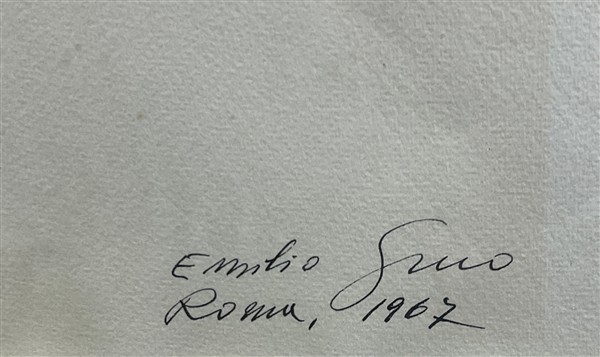 Emilio Greco
Roma, 1967